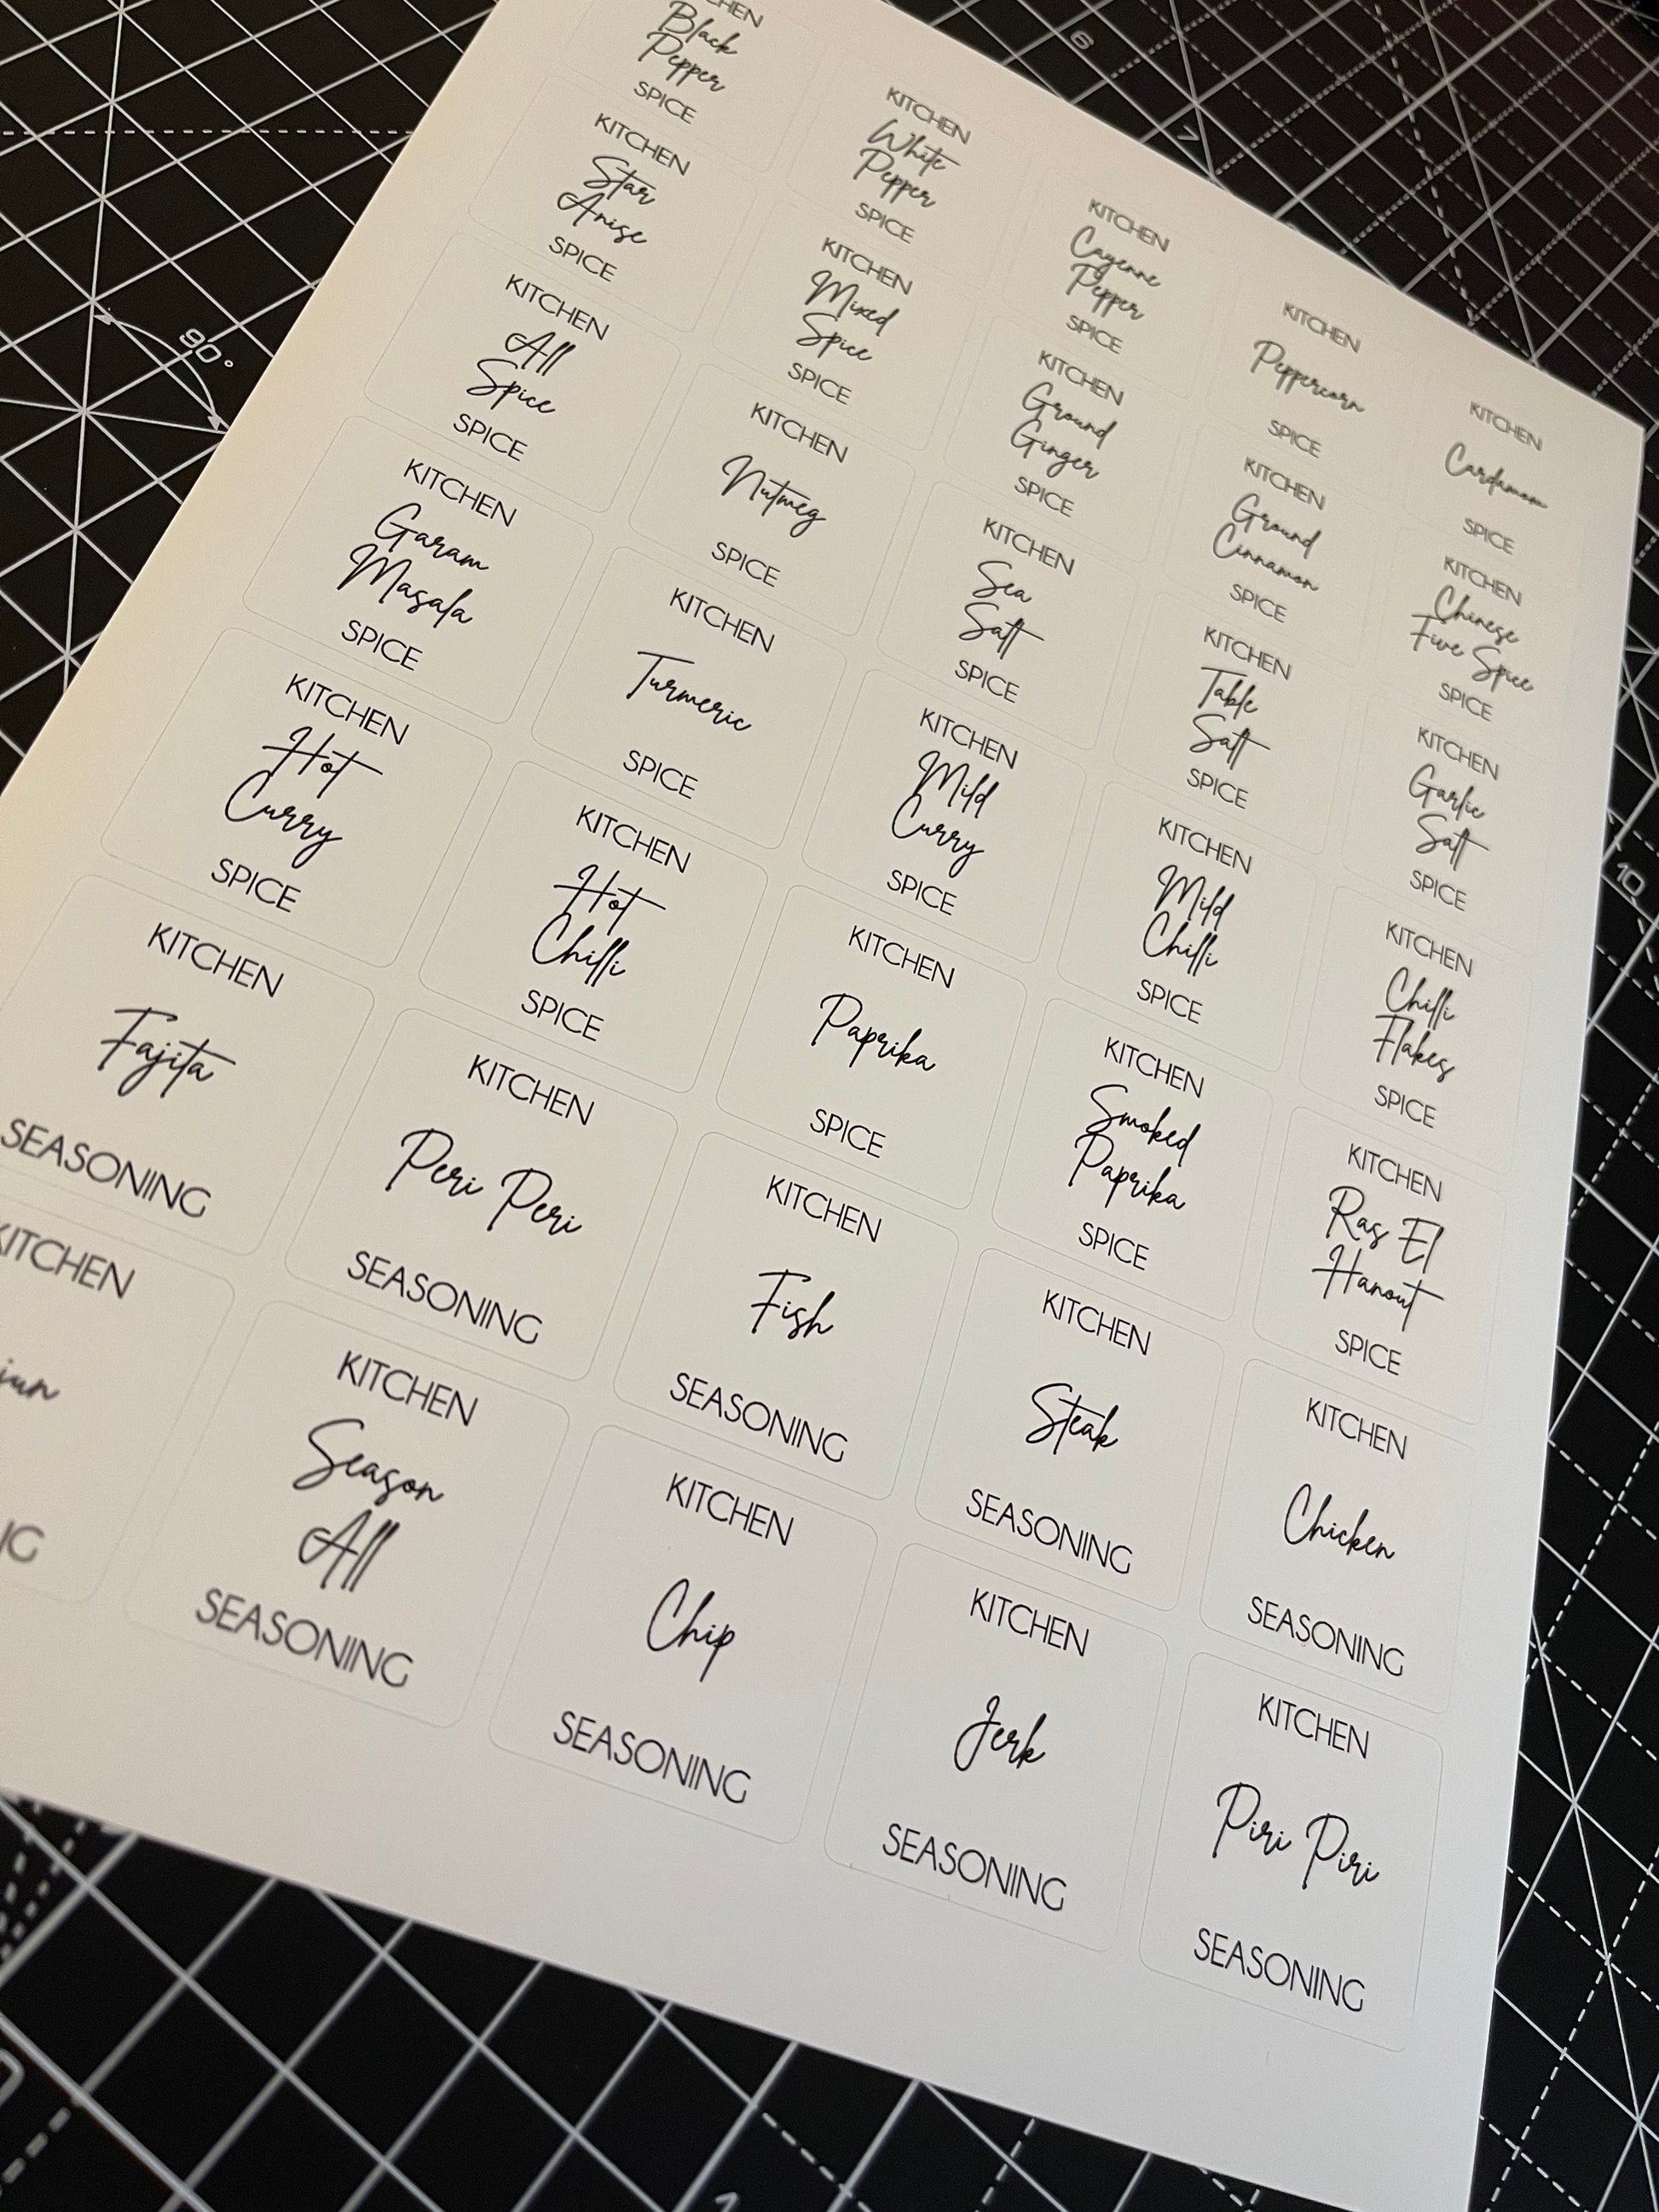 KITCHEN
Black
Pepper
SPICE
KITCHEN
White
Pepper
SPICE
KITCHEN
Cayenne
Pepper
SPICE
KITCHEN
Peppercorn
SPICE
KITCHEN
Cardamom
SPICE
KITCHEN
Star
Anise
SPICE
KITCHEN
Mixed
Spice
SPICE
KITCHEN
Ground
Ginger
SPICE
KITCHEN
Ground
Cinnamon
SPICE
KITCHEN
Chinese
Five Spice
SPICE
KITCHEN
All
Spice
SPICE
KITCHEN
Nutmeg
SPICE
KITCHEN
Sea
Salt
SPICE
KITCHEN
Table
Salt
SPICE
KITCHEN
Garlic
Salt
SPICE
KITCHEN
Garam
Masala
SPICE
KITCHEN
Turmeric
SPICE
KITCHEN
Mild
Curry
SPICE
KITCHEN
Mild
Chilli
SPICE
KITCHEN
Chilli
Flakes
SPICE
KITCHEN
Hot
Curry
SPICE
KITCHEN
Hot
Chilli
SPICE
KITCHEN
Paprika
SPICE
KITCHEN
Smoked
Paprika
SPICE
KITCHEN
Ras El
Hanout
SPICE
KITCHEN
Fajita
SEASONING
KITCHEN
Peri Peri
SEASONING
KITCHEN
Fish
SEASONING
KITCHEN
Steak
SEASONING
KITCHEN
Chicken
SEASONING
KITCHEN
KITCHEN
Season
All
SEASONING
KITCHEN
Chip
SEASONING
KITCHEN
Jerk
SEASONING
KITCHEN
Piri Piri
SEASONING
90°
6
7
10